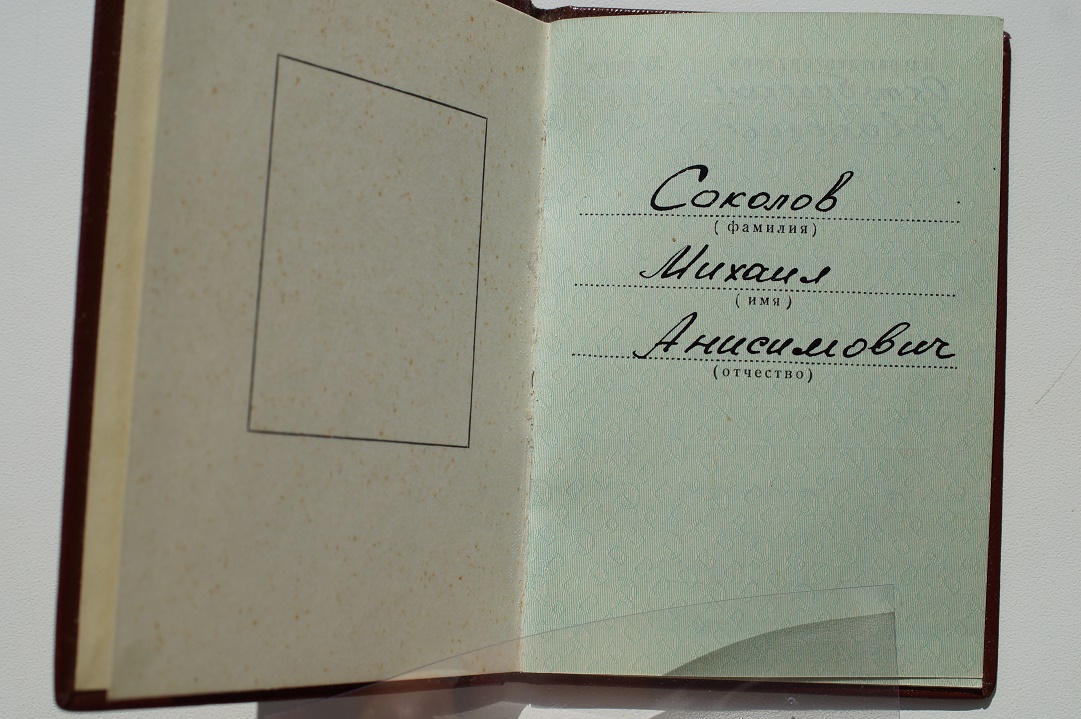 Соколов
(фамилия)
Михаил
(имя)
Анисимович
(отчество)